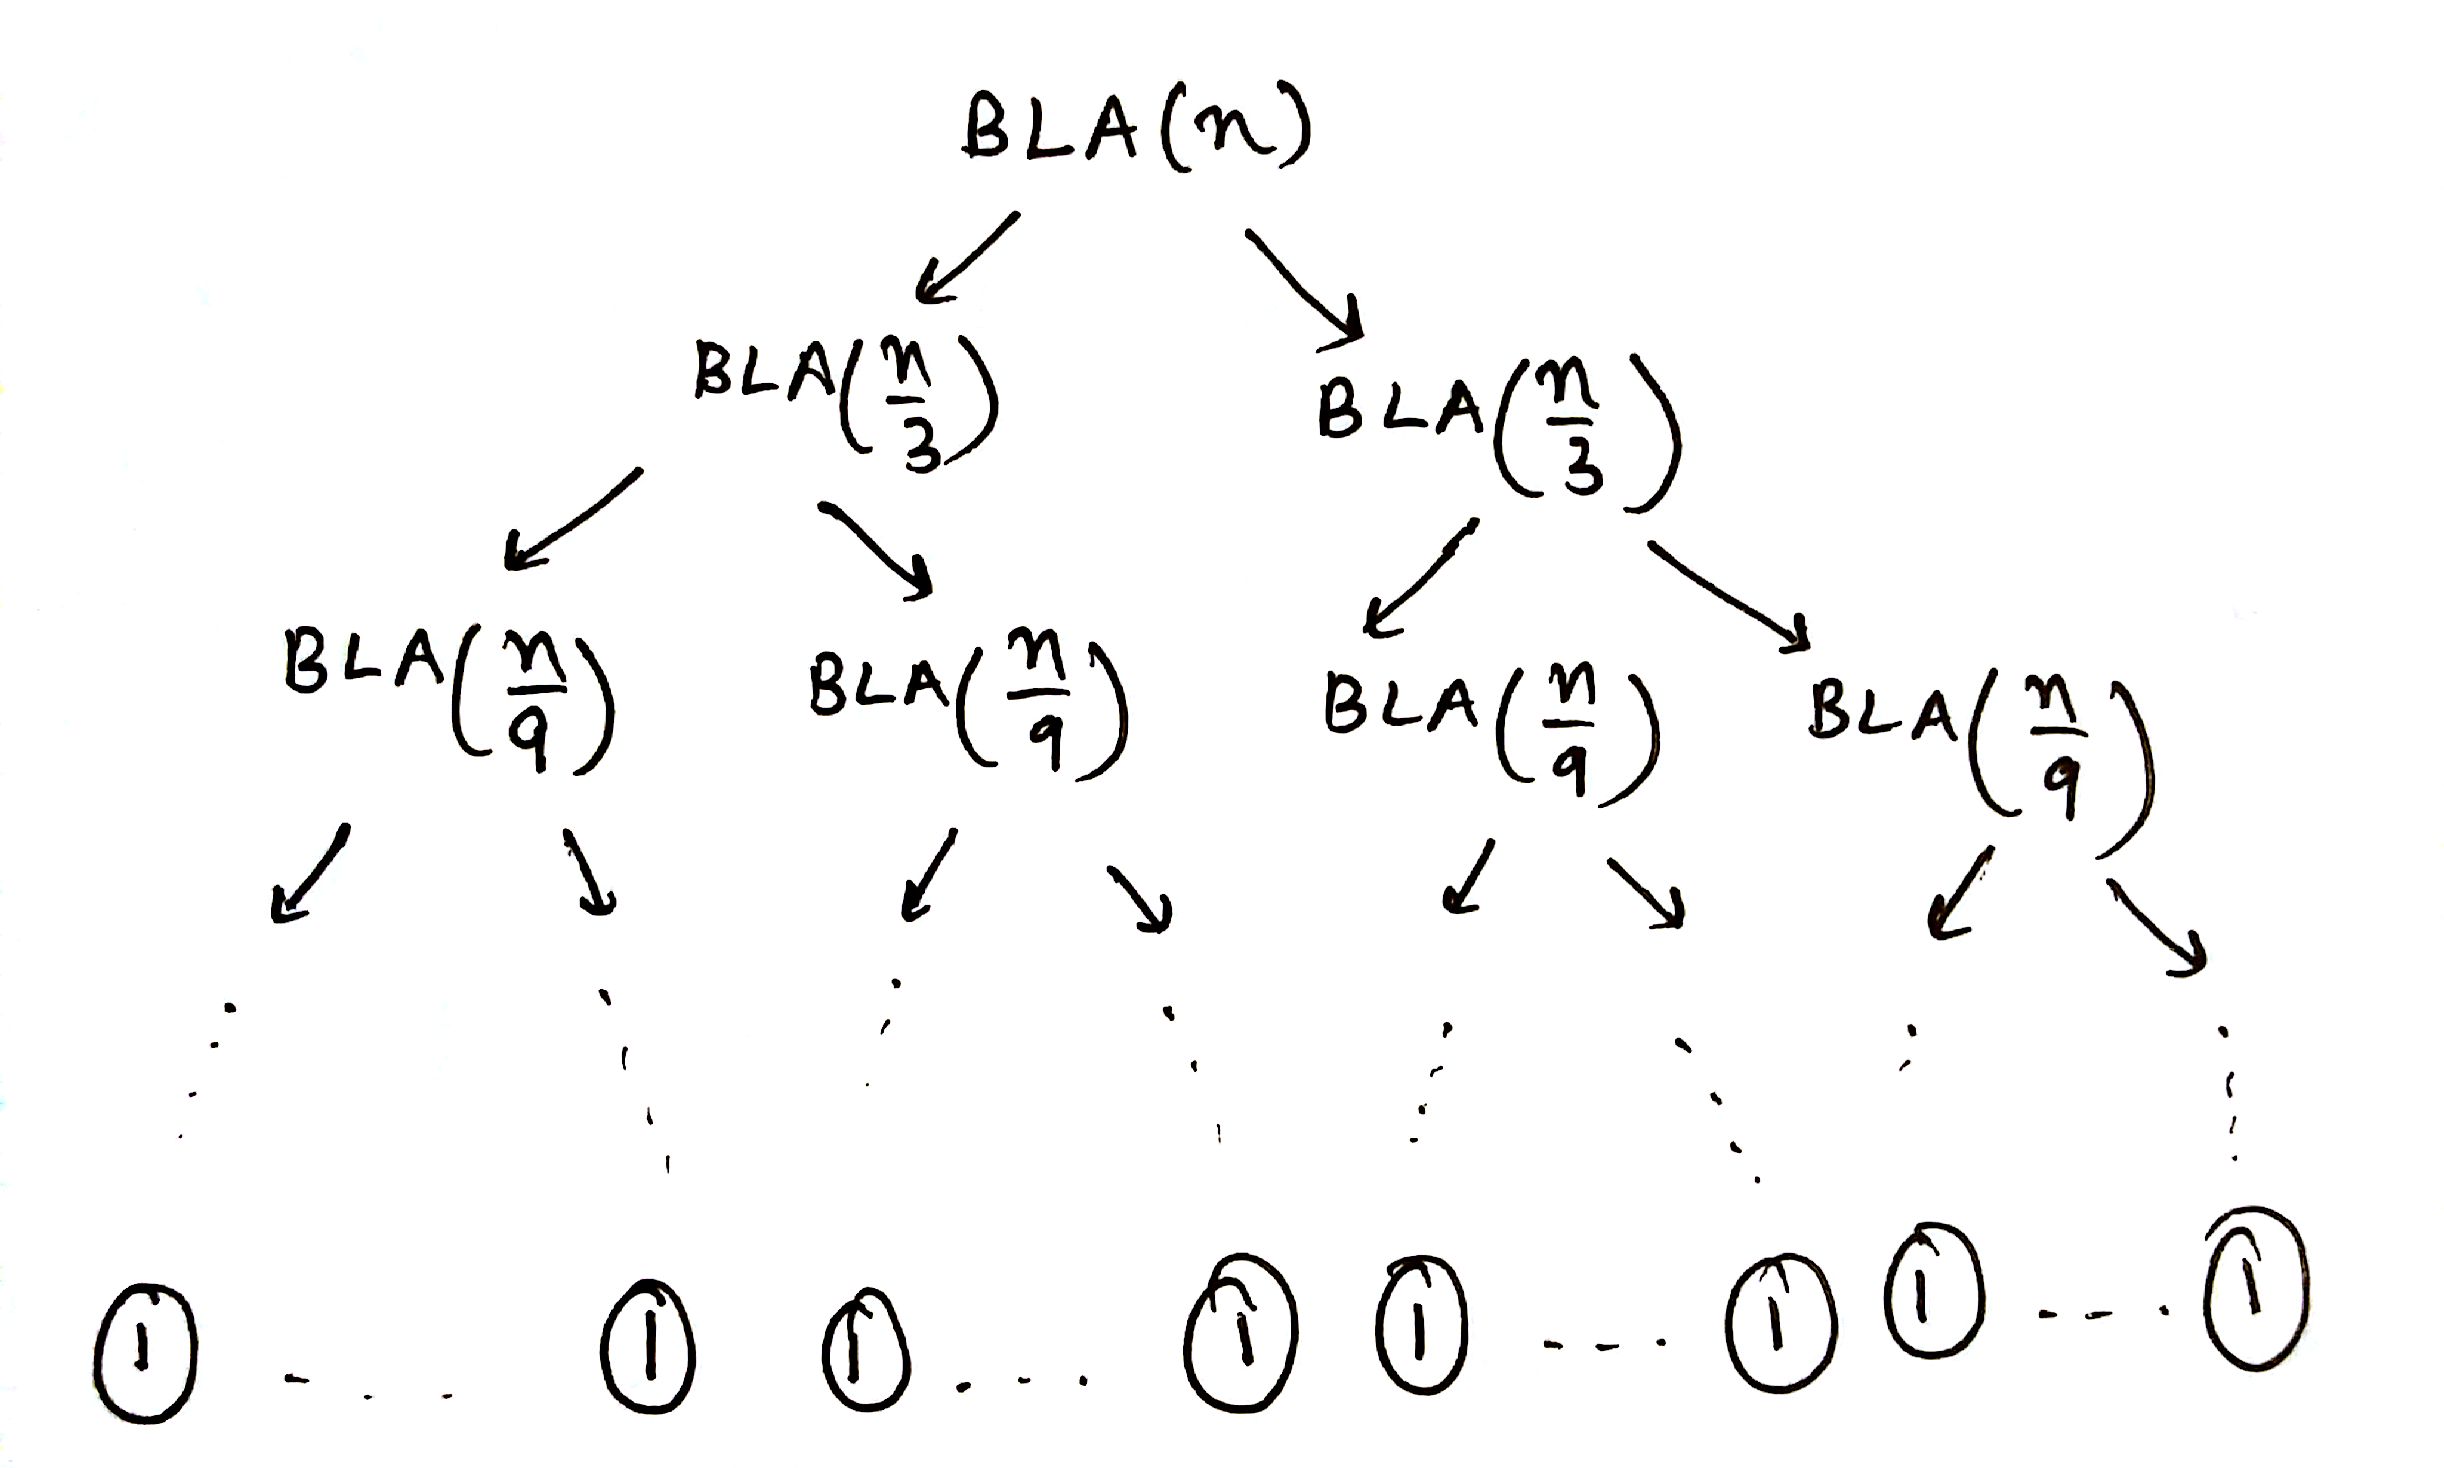 BLA(n)
BLA(n/3) BLA(n/3)
BLA(n/9) BLA(n/9) BLA(n/9) BLA(n/9)
1 ---- 1 1 ---- 1 1 ---- 1 1 ---- 1